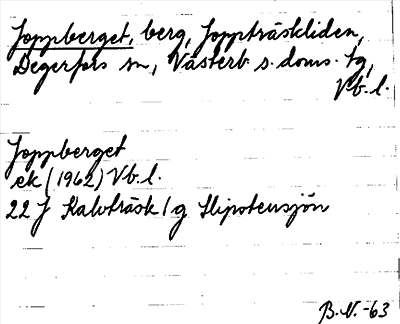 Joppberget, berg, Joppträskliden,
Degerfors sn, Västerb. s. doms. tg,
Vb. l.
Joppberget
ek (1962) Vb. l.
22 J Kalvträsk / g Slipstensjön
B.N.-63